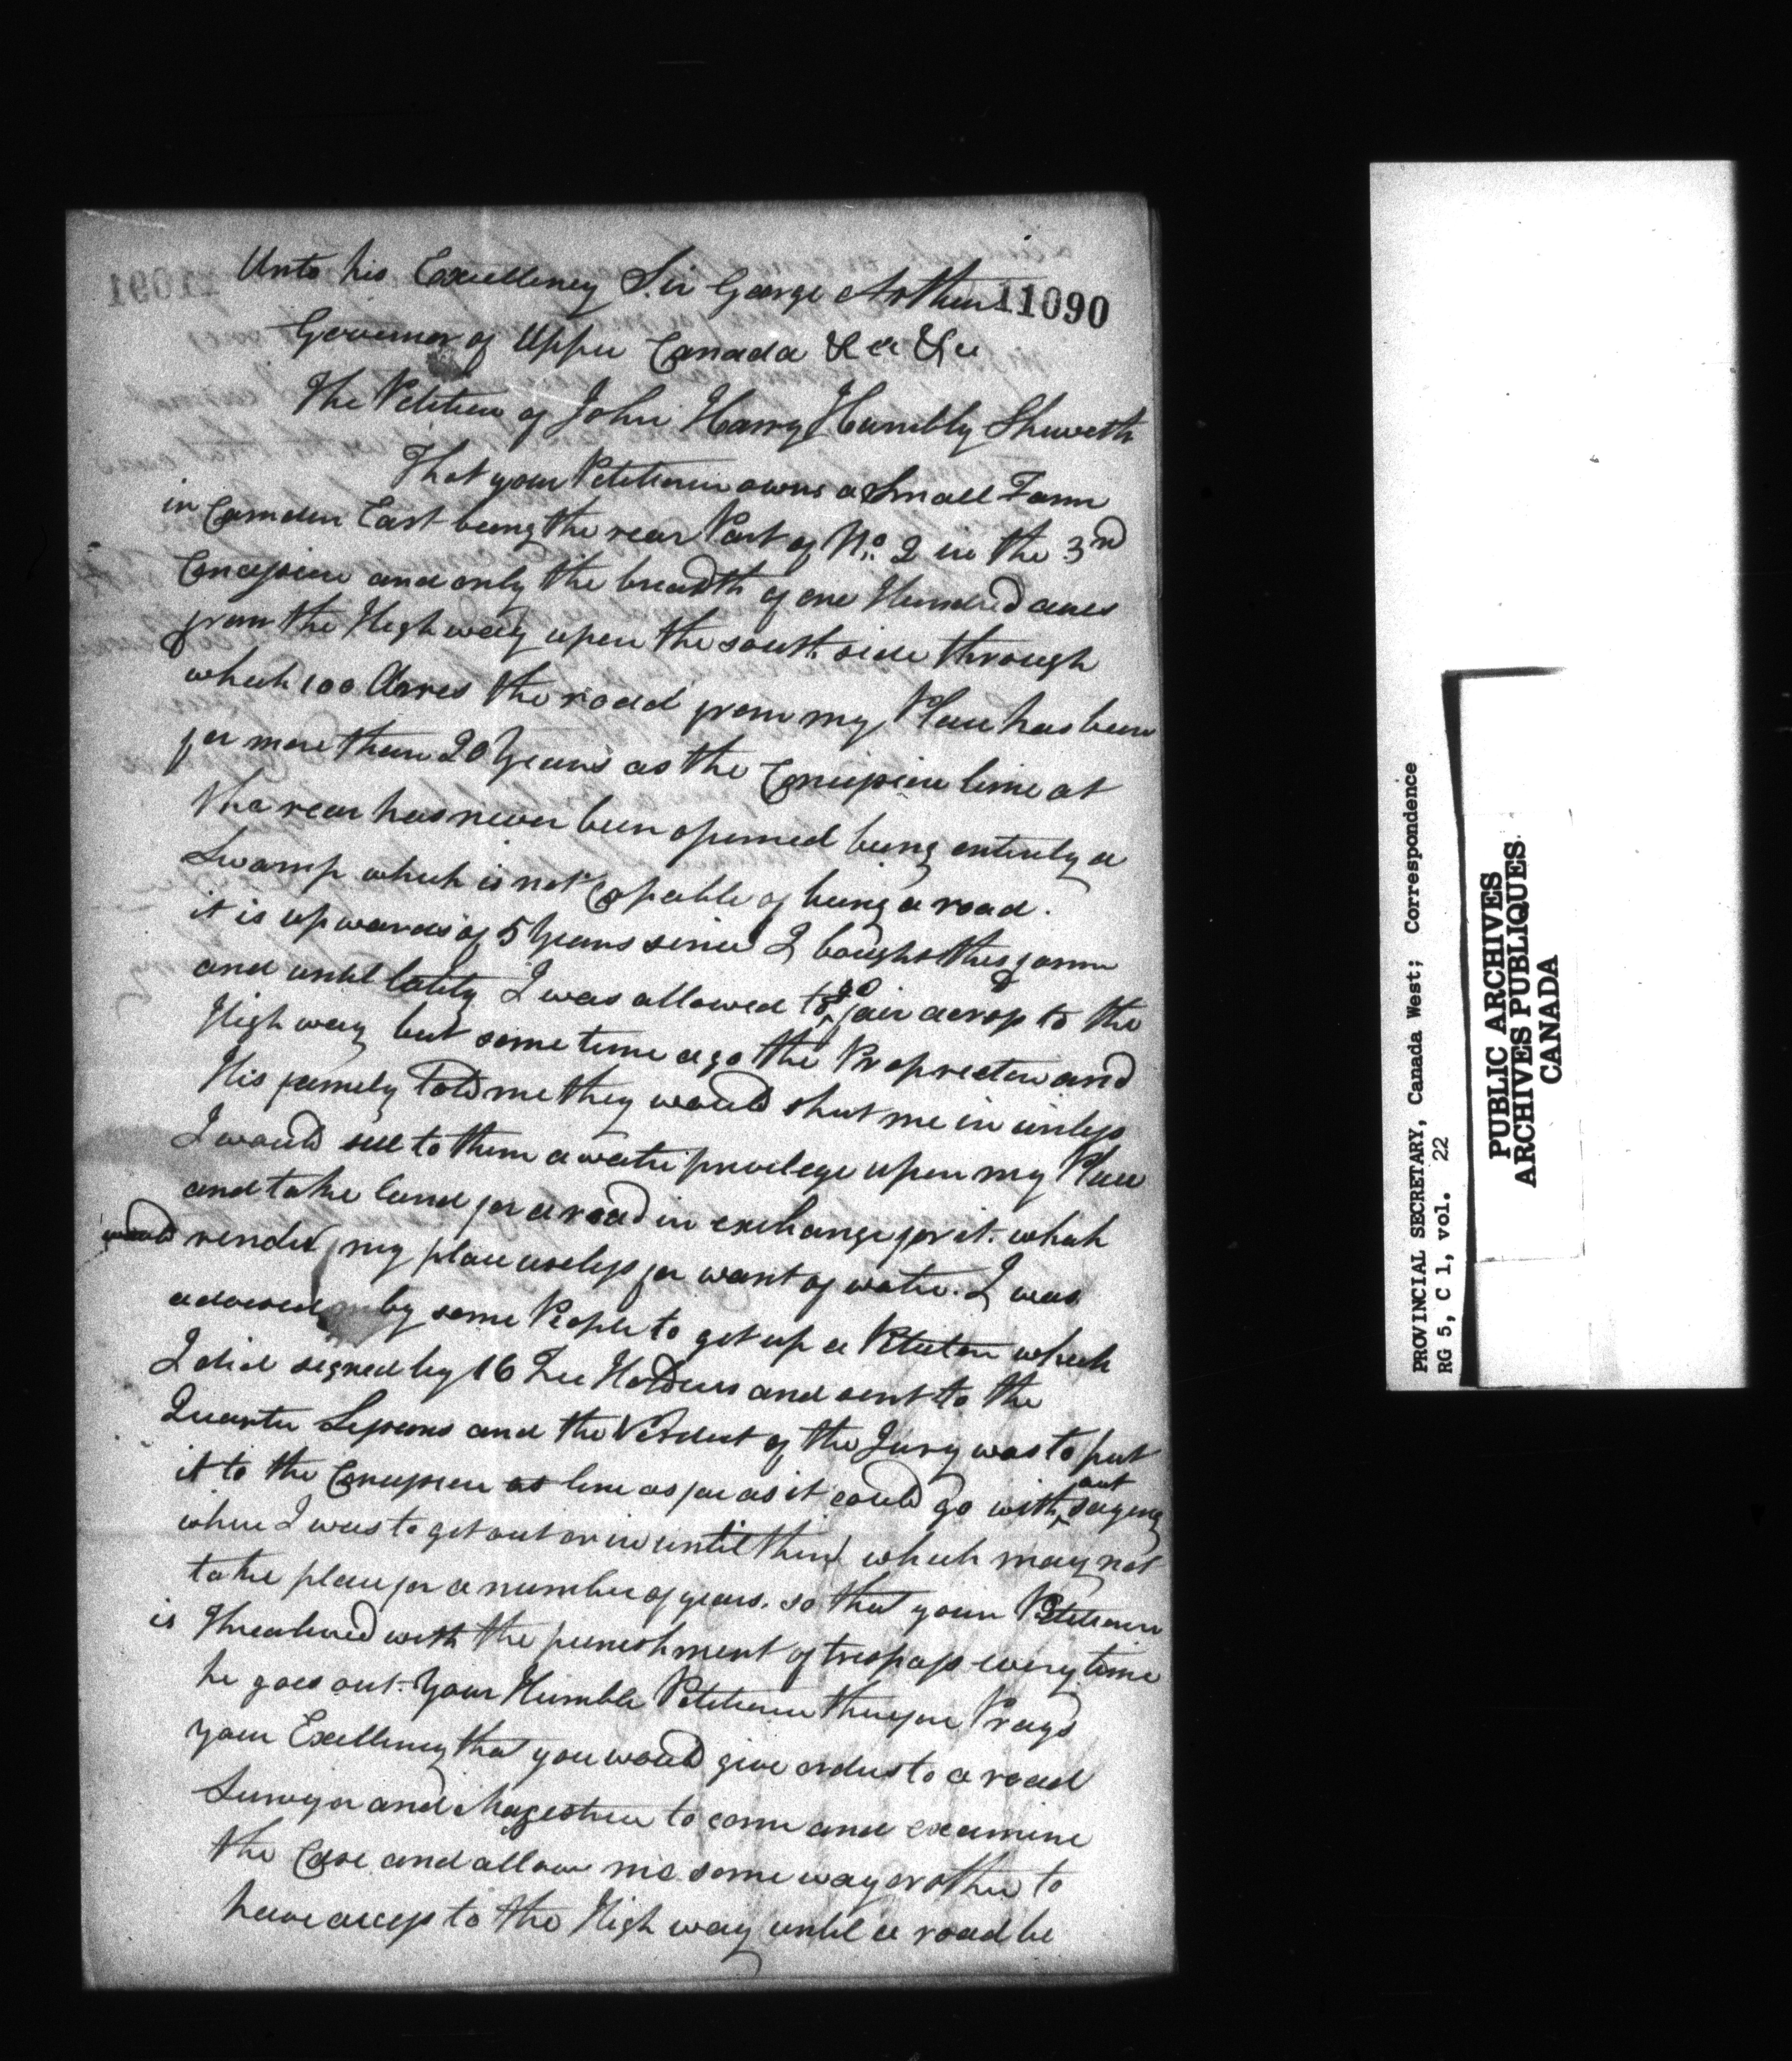 Unto his Excellency Sir George Arthur 11090
Governor of Upper Canada &c &c
The Petition of John Harry Humbly Sheweth
That your Petitioner owns a Small Farm
in Camden East being the rear Part of No. 2 in the 3rd
Concession and only the breadth of one Hundred acres
from the High way upon the south side through
which 100 Acres the road from my Place has been
for more than 20 Years as the Concession line at
the rear has never been opened being entirely a
Swamp which is not Capable of being a road.
it is upwards of 5 Years since I bought this farm
and until lately I was allowed to go fair across to the
High way but some time ago the Proprietor and
His family told me they would shut me in unless
I would sell to them a water privilege upon my Place
and take land for a road in exchange for it. which
would render my place useless for want of water. I was
advised by some People to get up a Petition which
I did signed by 16 Free Holders and sent to the
Quarter Sessions and the Verdict of the Jury was to put
it to the Concession as line as far as it could go without saying
where I was to get out or in until then which may not
take place for a number of years. so that your Petitioner
is threatened with the punishment of trespass every time
he goes out. Your Humble Petitioner therefore Prays
your Excellency that you would give orders to a road
Surveyor and Magistrate to come and examine
the Case and allow me some way or other to
have access to the High way until a road be
11091
PROVINCIAL SECRETARY, Canada West; Correspondence
RG 5, C 1, vol. 22
PUBLIC ARCHIVES
ARCHIVES PUBLIQUES
CANADA